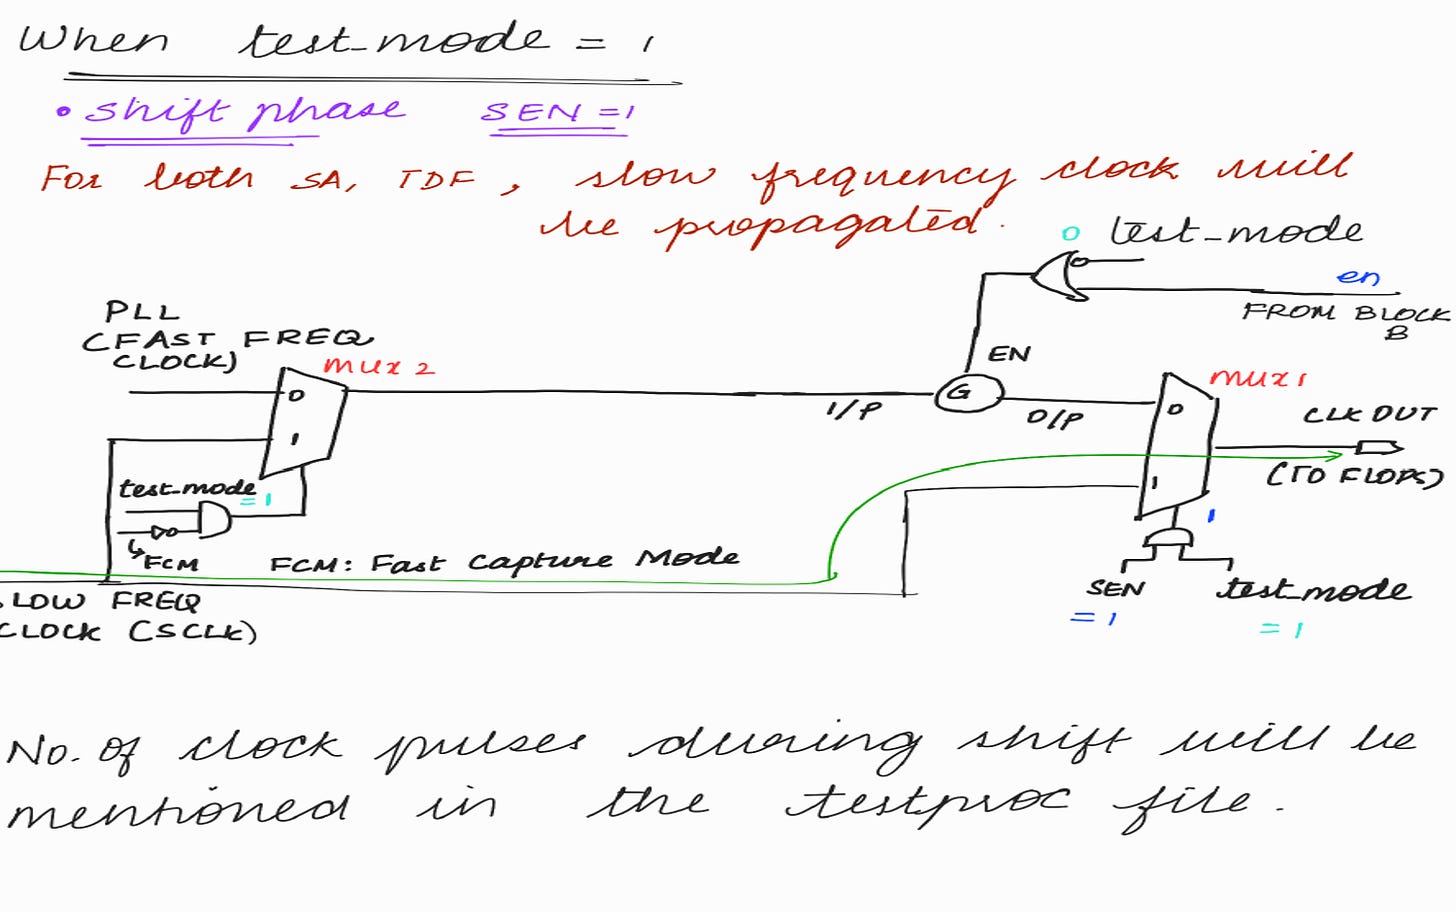 When test_mode = 1
• Shift phase SEN = 1
For both SA, TDF, slow frequency clock will
be propagated.
0 test_mode
en
FROM BLOCK
B
PLL
(FAST FREQ
CLOCK)
MUX 2
0
1
EN
G
I/P
O/P
MUX 1
0
1
CLK OUT
(TO FLOPS)
test_mode
= 1
FCM
FCM: Fast Capture Mode
1
SEN
= 1
test_mode
= 1
LOW FREQ
CLOCK (SCLK)
No. of clock pulses during shift will be
mentioned in the testproc file.